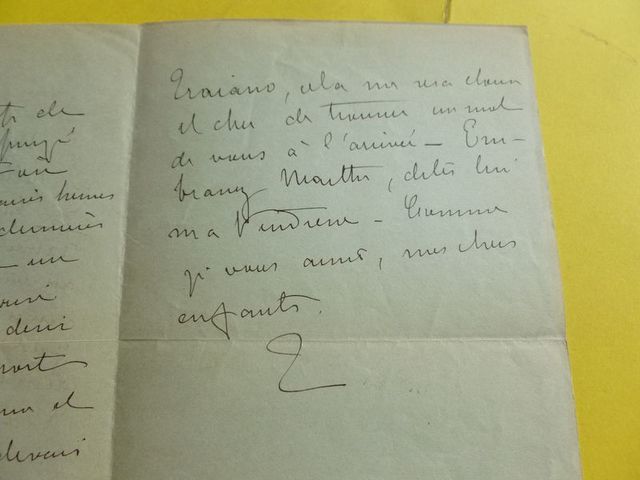 ts de
purgé
Fair
heures
dernières
— un
deux
part
ma et
devais
Traiano, cela me sera doux
et cher de trouver un mot
de vous à l'arrivée — Em-
brassez Marthe, dites lui
ma tendresse — Comme
je vous aime, mes chers
enfants.